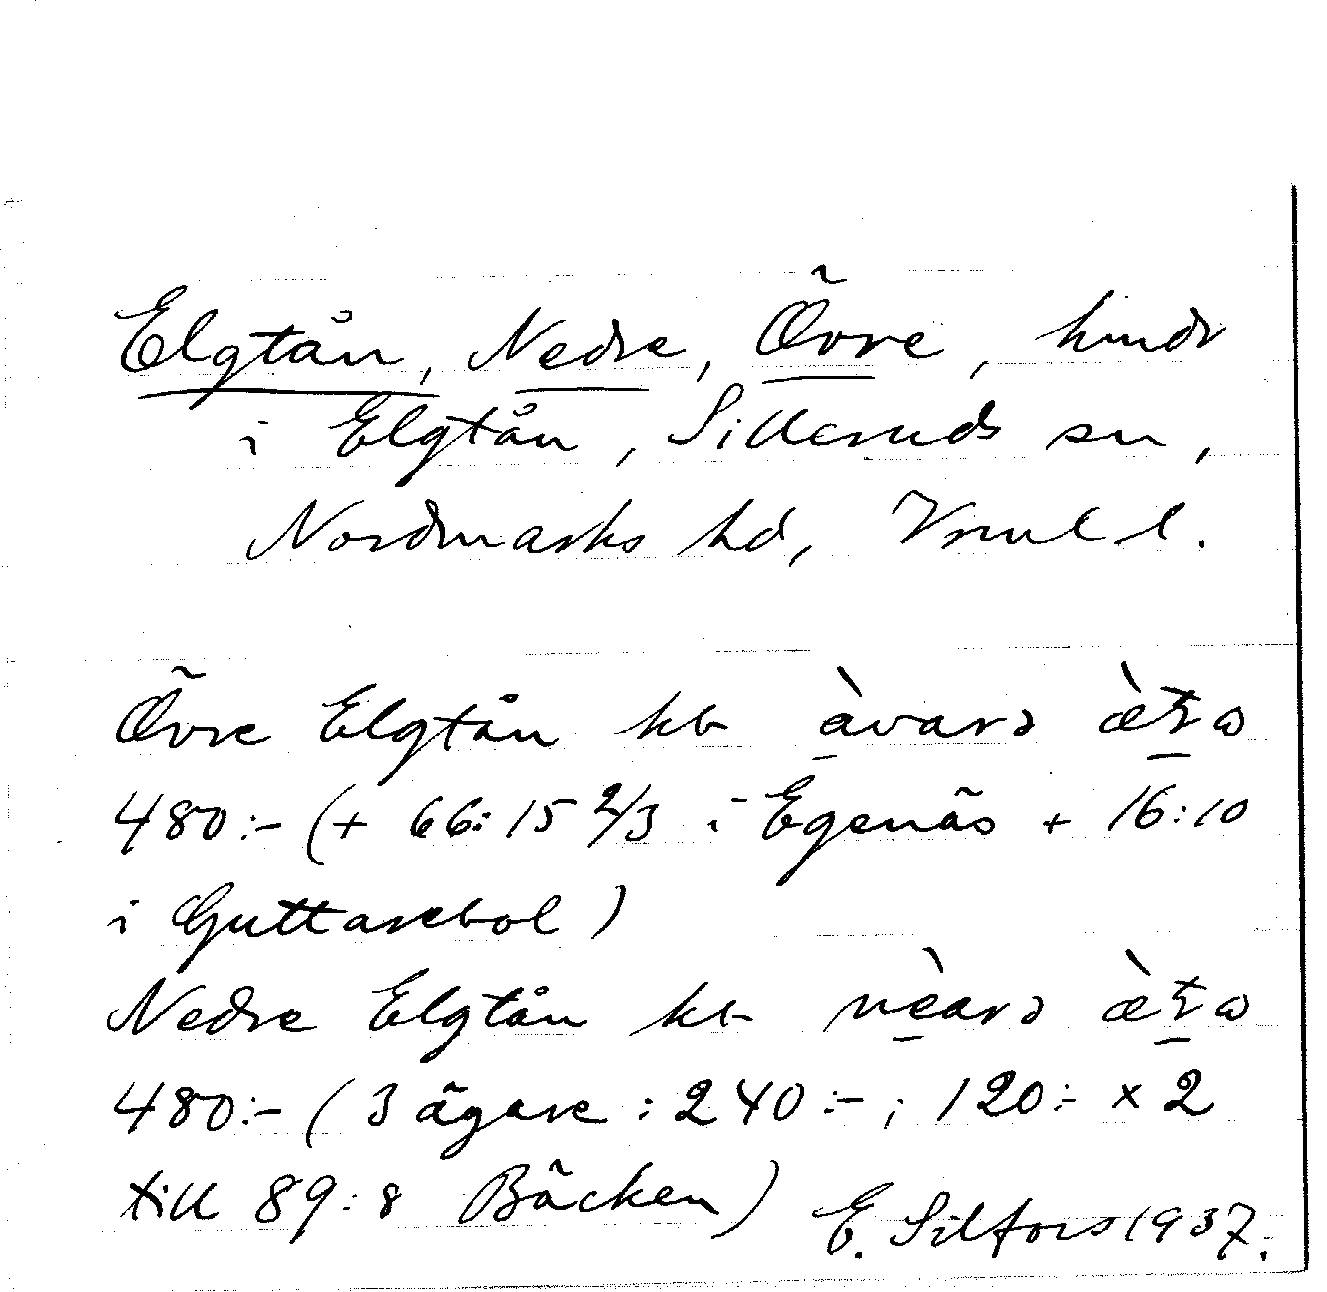 Elgtån, Nedre, Övre, hmdr
i Elgtån, Silleruds sn,
Nordmarks hd, Vrml l.
Övre Elgtån kb
480:- (+ 66:15 2/3 i Egenäs + 16:10
i Guttarebol)
Nedre Elgtån kb
480:- (3 ägare: 240:-; 120:- × 2
till 89:8 Bäcken) E. Silfors 1937.